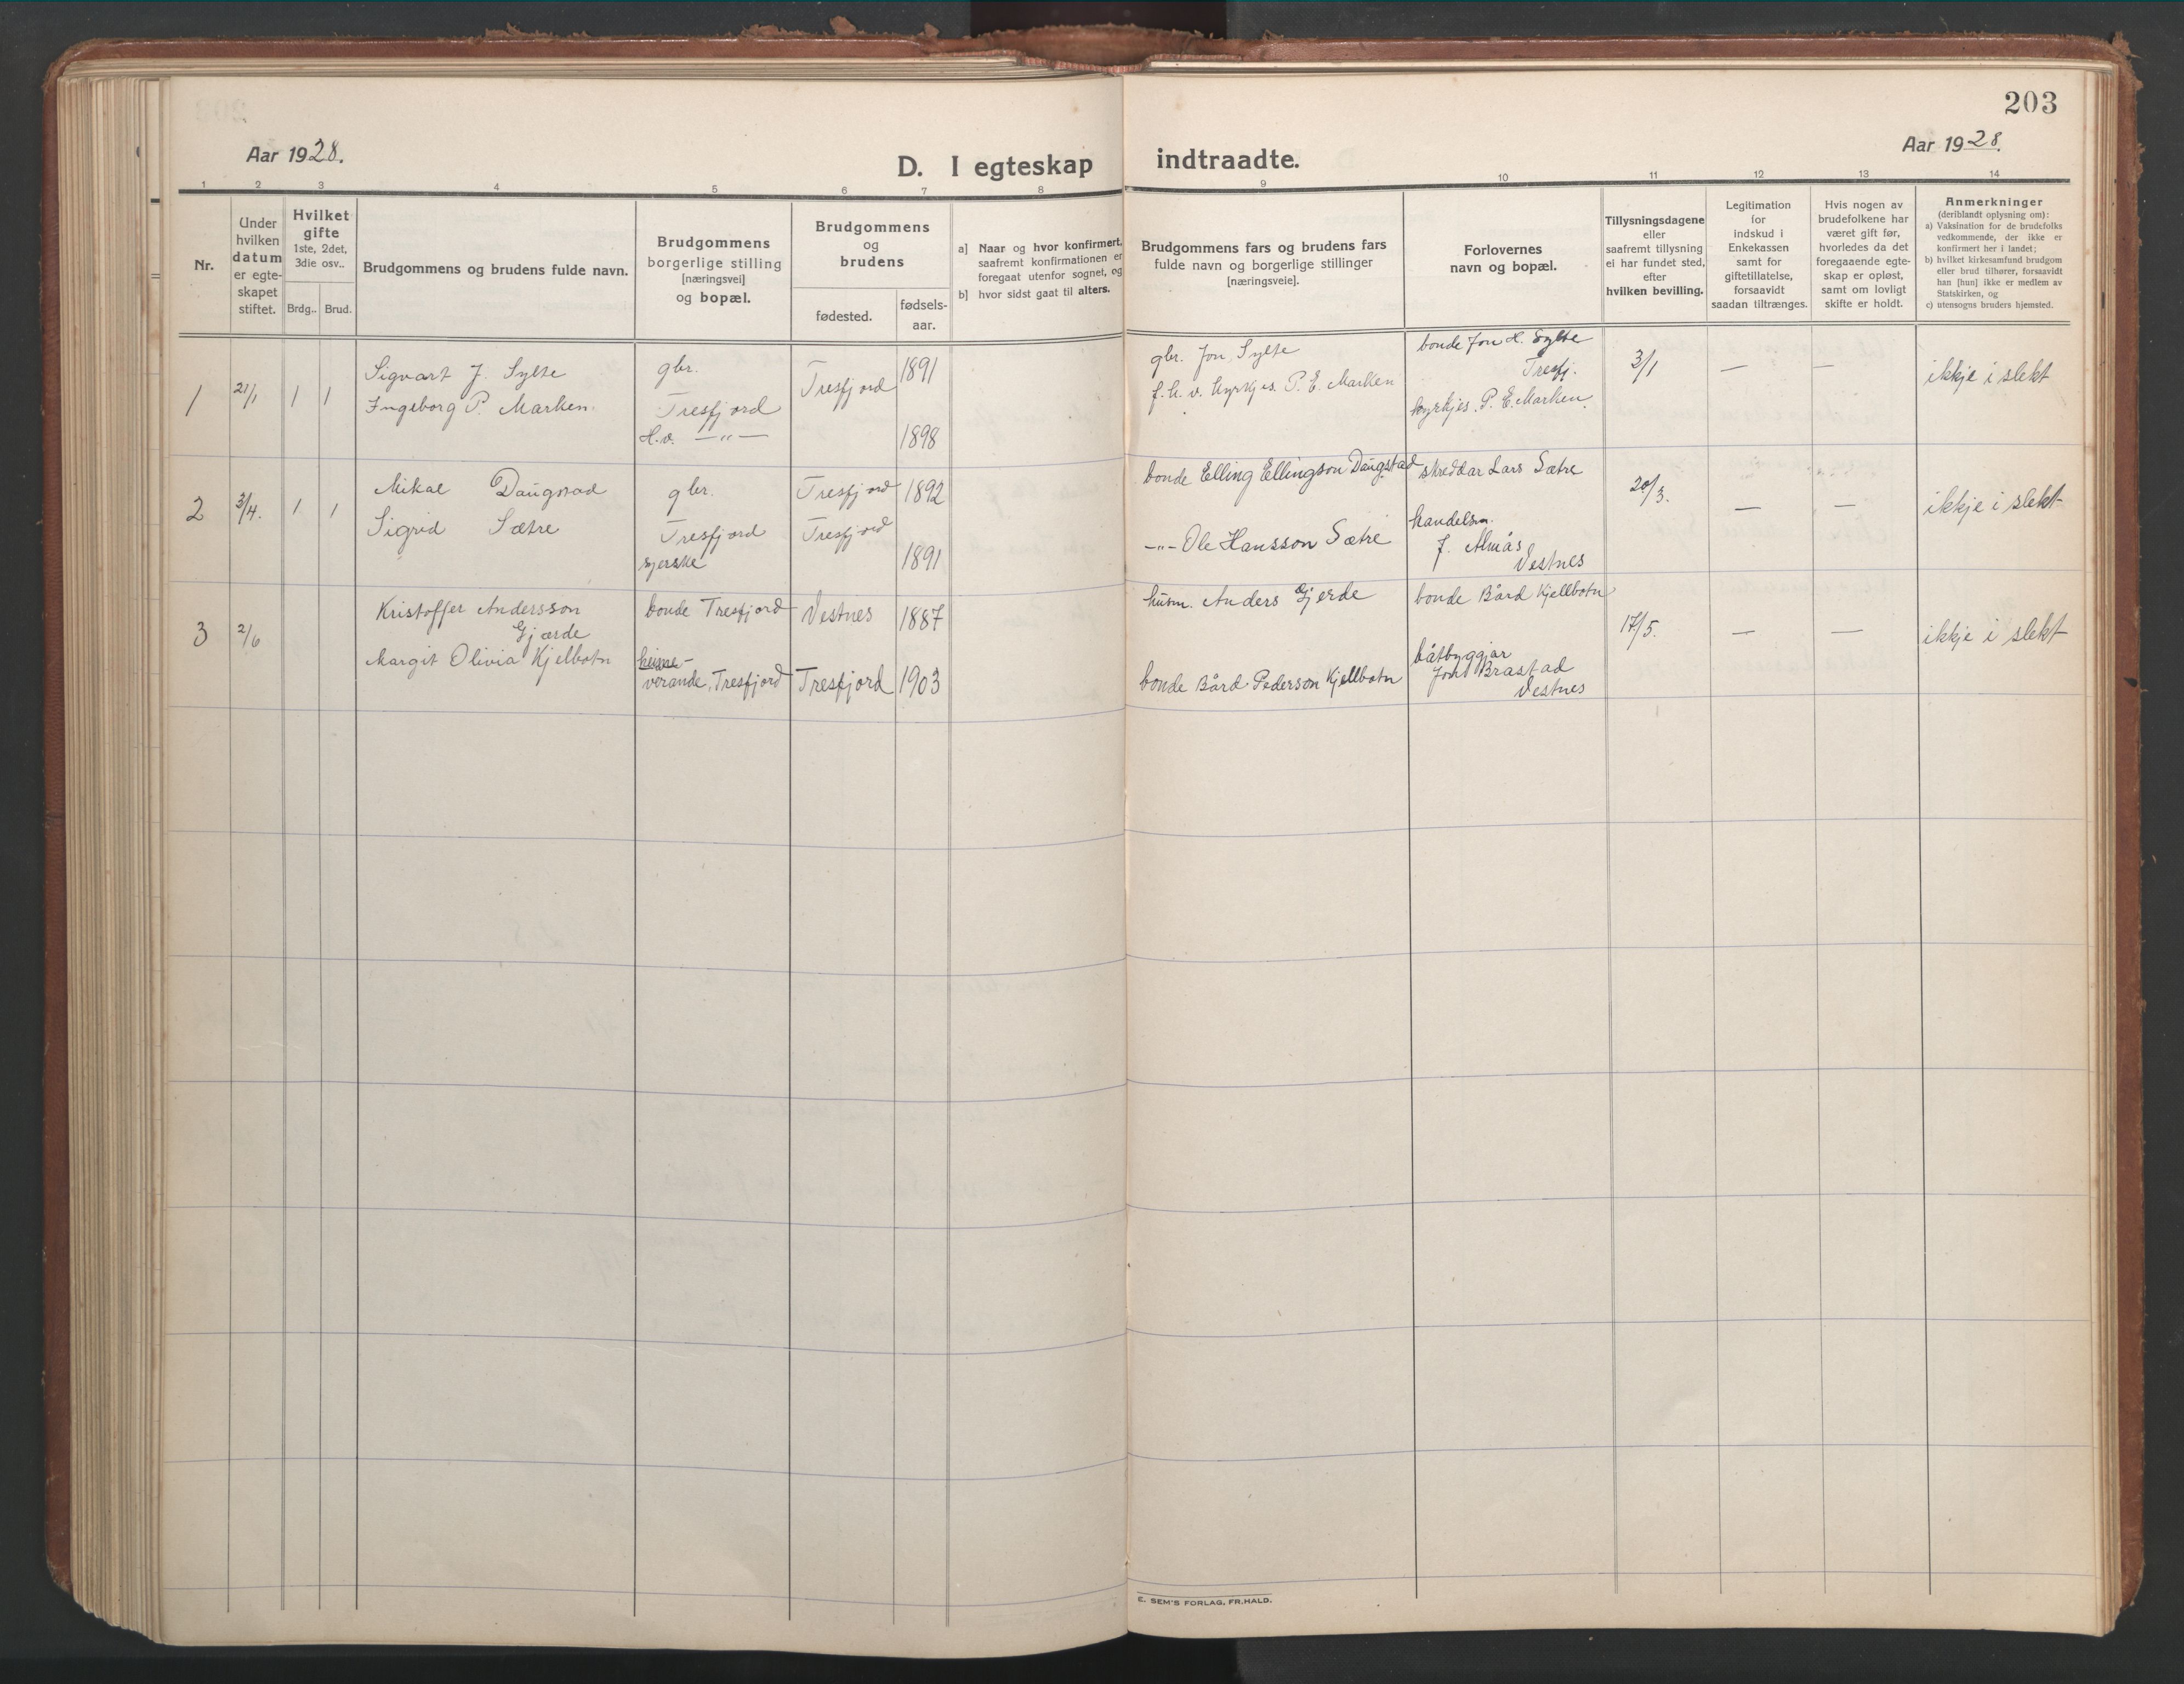 203
Aar 1928.
Aar 1928.
D. I egteskap indtraadte.
1 2 3 4 5 6 7 8 9 10 11 12 13 14
Nr.
Under hvilken datum er egte-skapet stiftet.
Hvilket gifte
1ste, 2det, 3die osv..
Brdg.. Brud.
Brudgommens og brudens fulde navn.
Brudgommens borgerlige stilling [næringsvei] og bopæl.
Brudgommens og brudens
fødested.
fødsels-aar.
a] Naar og hvor konfirmert, saafremt konfirmationen er foregaat utenfor sognet, og
b] hvor sidst gaat til alters.
Brudgommens fars og brudens fars fulde navn og borgerlige stillinger [næringsveie].
Forlovernes navn og bopæl.
Tillysningsdagene eller saafremt tillysning ei har fundet sted, efter hvilken bevilling.
Legitimation for indskud i Enkekassen samt for giftetillatelse, forsaavidt saadan tiltrænges.
Hvis nogen av brudefolkene har været gift før, hvorledes da det foregaaende egte-skap er opløst, samt om lovligt skifte er holdt.
Anmerkninger
(deriblandt oplysning om):
a) Vaksination for de brudefolks vedkommende, der ikke er konfirmert her i landet;
b) hvilket kirkesamfund brudgom eller brud tilhører, forsaavidt han [hun] ikke er medlem av Statskirken, og
c) utensogns bruders hjemsted.
1 21/1 1 1
Sigvart J. Sylte
Ingeborg P. Marken.
gbr.
Tresfjord
H.v. —"—
Tresfjord
1891
1898
gbr. Jon Sylte
f. h. v. kyrkjes. P. E. Marken
bonde Jon H. Sylte
Tresfj.
kyrkjes. P. E. Marken.
3/1
—
—
ikkje i slekt
2 3/4. 1 1
Mikal Daugstad
Sigrid Sætre
gbr.
Tresfjord
syerske
Tresfjord
Tresfjord
1892
1891
bonde Elling Ellingson Daugstad
—"— Ole Hansson Sætre
skreddar Lars Sætre
handelsm.
J. Almås,
Vestnes
20/3.
—
—
ikkje i slekt
3 2/6
Kristoffer Andersson
Gjærde
Margit Olivia Kjelbotn
bonde Tresfjord
heime-
verande, Tresfjord
Vestnes
Tresfjord
1887
1903
husm. Anders Gjerde
bonde Bård Pederson Kjellbotn
bonde Bård Kjellbotn
båtbyggjar
Brastad
Vestnes
17/5.
—
—
ikkje i slekt
E. SEM'S FORLAG, FR.HALD.